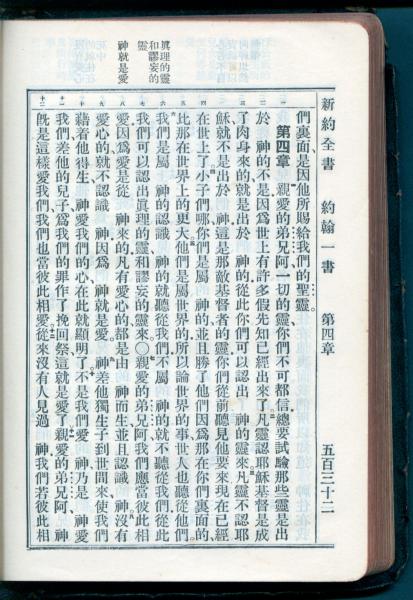 新約全書 約翰一書 第四章 五百三十二
眞理的靈
和謬妄的
靈
神就是愛
們裏面是因他所賜給我們的聖靈
第四章 親愛的弟兄阿一切的靈你們不可都信總要試驗那些靈是出
於 神的不是因爲世上有許多假先知已經出來了凡靈認耶穌基督是成
了肉身來的就是出於 神的從此你們可以認出 神的靈來凡靈不認耶
穌就不是出於 神這是那敵基督者的靈你們從前聽見他要來現在已經
在世上了小子們哪你們是屬 神的並且勝了他們因爲那在你們裏面的
比那在世界上的更大他們是屬世界的所以論世界的事世人也聽從他們
我們是屬 神的認識 神的就聽從我們不屬 神的就不聽從我們從此
我們可以認出眞理的靈和謬妄的靈來〇親愛的弟兄阿我們應當彼此相
愛因爲愛是從 神來的凡有愛心的都是由 神而生並且認識 神沒有
愛心的就不認識 神因爲 神就是愛 神差他獨生子到世間來使我們
藉着他得生 神愛我們的心在此就顯明了不是我們愛 神乃是 神愛
我們差他的兒子爲我們的罪作了挽回祭這就是愛了親愛的弟兄阿 神
旣是這樣愛我們我們也當彼此相愛從來沒有人見過 神我們若彼此相